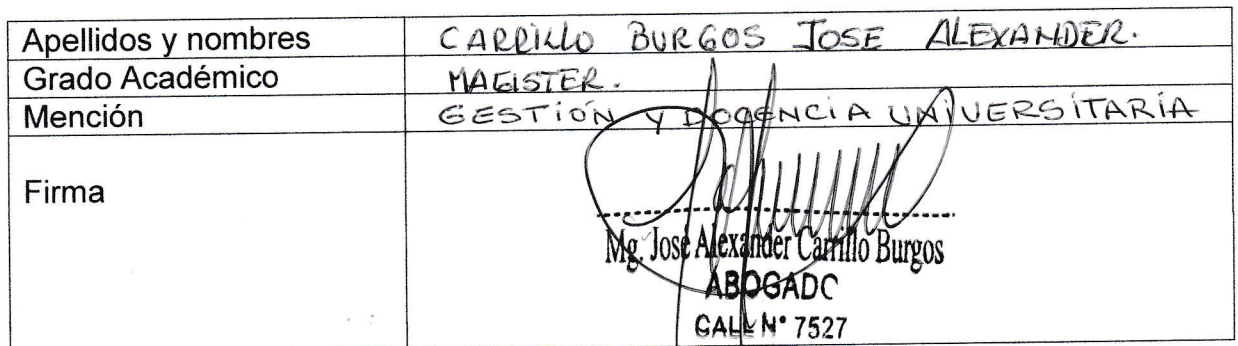 Apellidos y nombres CARRILLO BURGOS JOSE ALEXANDER.
Grado Académico MAGISTER.
Mención GESTIÓN Y DOCENCIA UNIVERSITARIA
Firma
Mg. José Alexander Carrillo Burgos
ABOGADO
CALL N° 7527